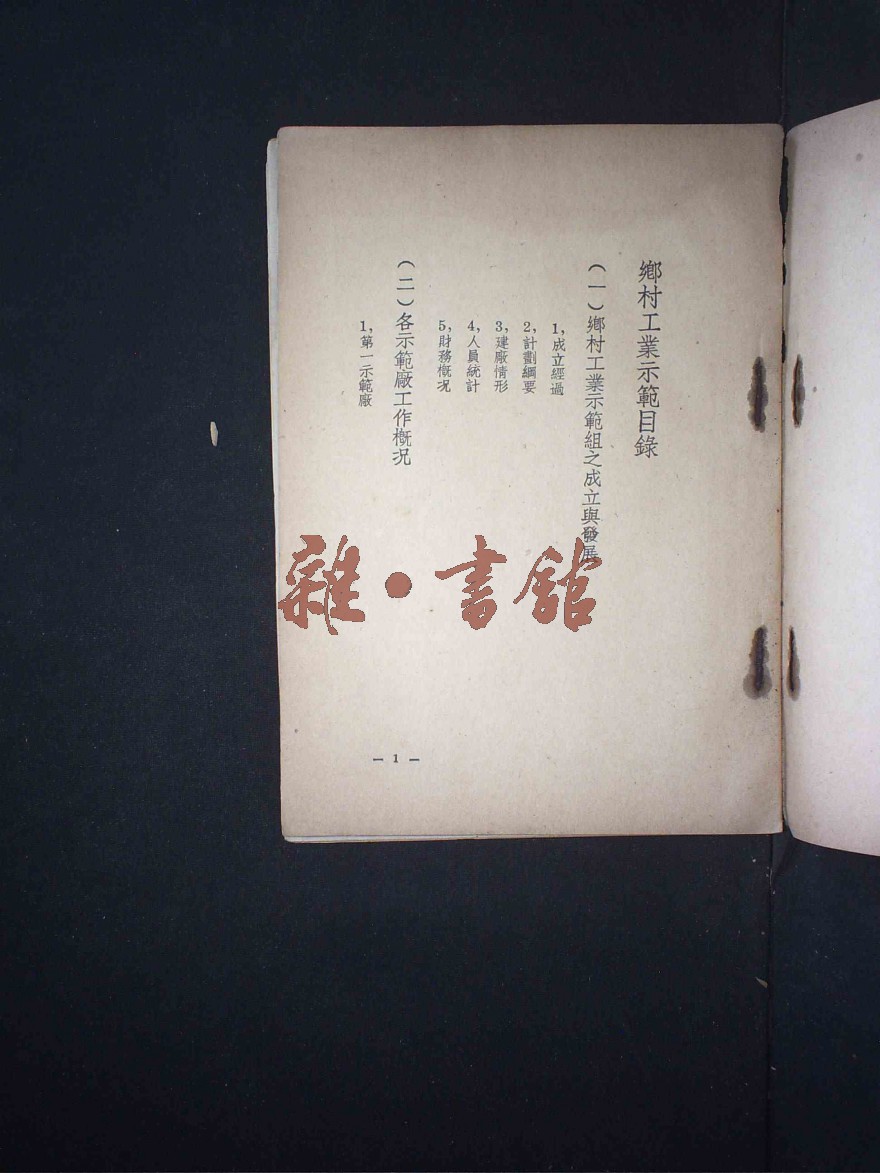 鄉村工業示範目錄
（一）鄉村工業示範組之成立與發展
1，成立經過
2，計劃綱要
3，建廠情形
4，人員統計
5，財務概況
（二）各示範廠工作概況
1，第一示範廠
— 1 —
雜·書館